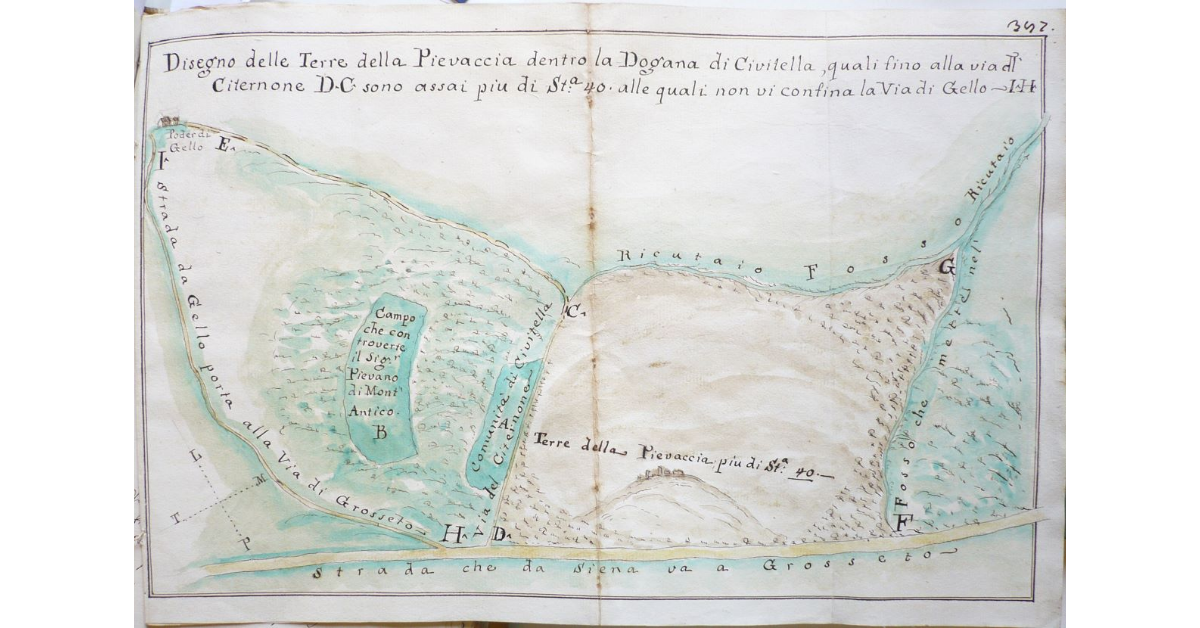 392.
Disegno delle Terre della Pievaccia dentro la Dogana di Civitella, quali fino alla via dl
Citernone D.C. sono assai piu di St.ª 40. alle quali non vi confina la Via di Gello I.H
Poder di
Gello
E
I
Strada da Gello porta alla Via di Grosseto
Campo
che con
troverte
il Sig.r
Pievano
di Mont
Antico.
B
Comunità di Civitella
A
Via del Citernone
C
Ricutaio Fosso Ricutaio
G
Fosso che mette nel
F
Terre della Pievaccia piu di St.ª 40.
H
D
L
M
T
P
Strada che da Siena va a Grosseto